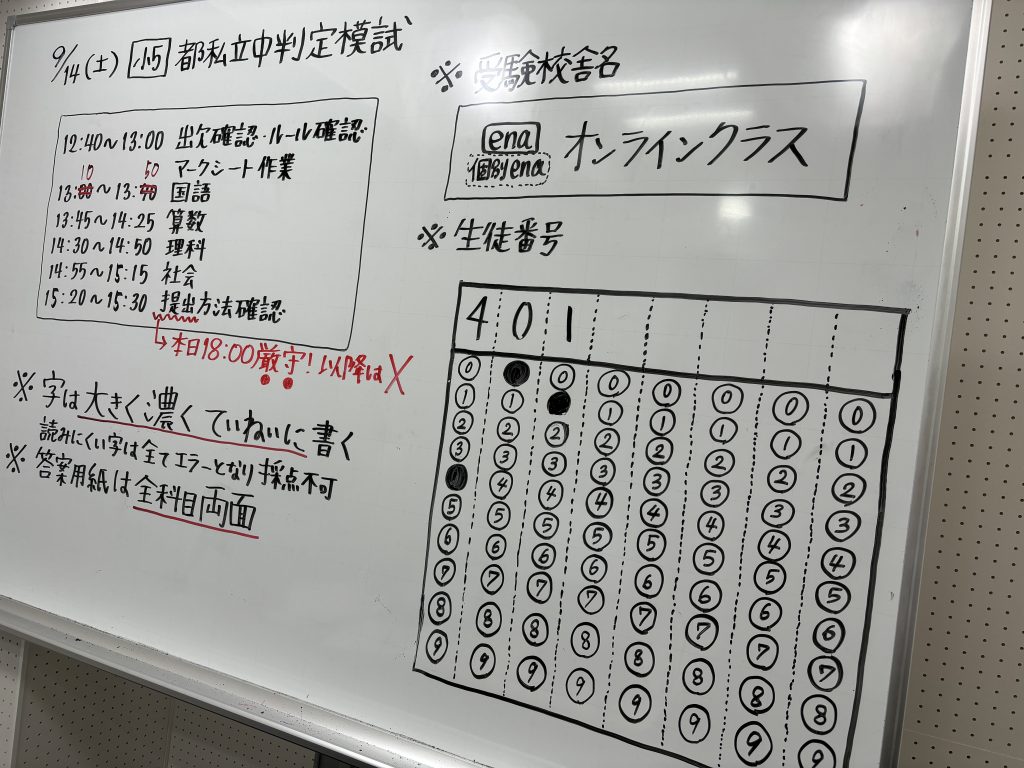 9/14(土) 小5 都私立中判定模試
12:40〜13:00 出欠確認・ルール確認
マークシート作業
10 50
13:00〜13:40 国語
13:45〜14:25 算数
14:30〜14:50 理科
14:55〜15:15 社会
15:20〜15:30 提出方法確認
→本日18:00厳守!以降は×
※字は大きく濃くていねいに書く
読みにくい字は全てエラーとなり採点不可
※答案用紙は全科目両面
※受験校舎名
ena
個別ena
オンラインクラス
※生徒番号
4 0 1
0 0 0 0 0 0 0
1 1 1 1 1 1 1
2 2 2 2 2 2 2 2
3 3 3 3 3 3 3 3
0 4 4 4 4 4 4 4
5 5 5 5 5 5 5 5
6 6 6 6 6 6 6 6
7 7 7 7 7 7 7 7
8 8 8 8 8 8 8 8
9 9 9 9 9 9 9 9